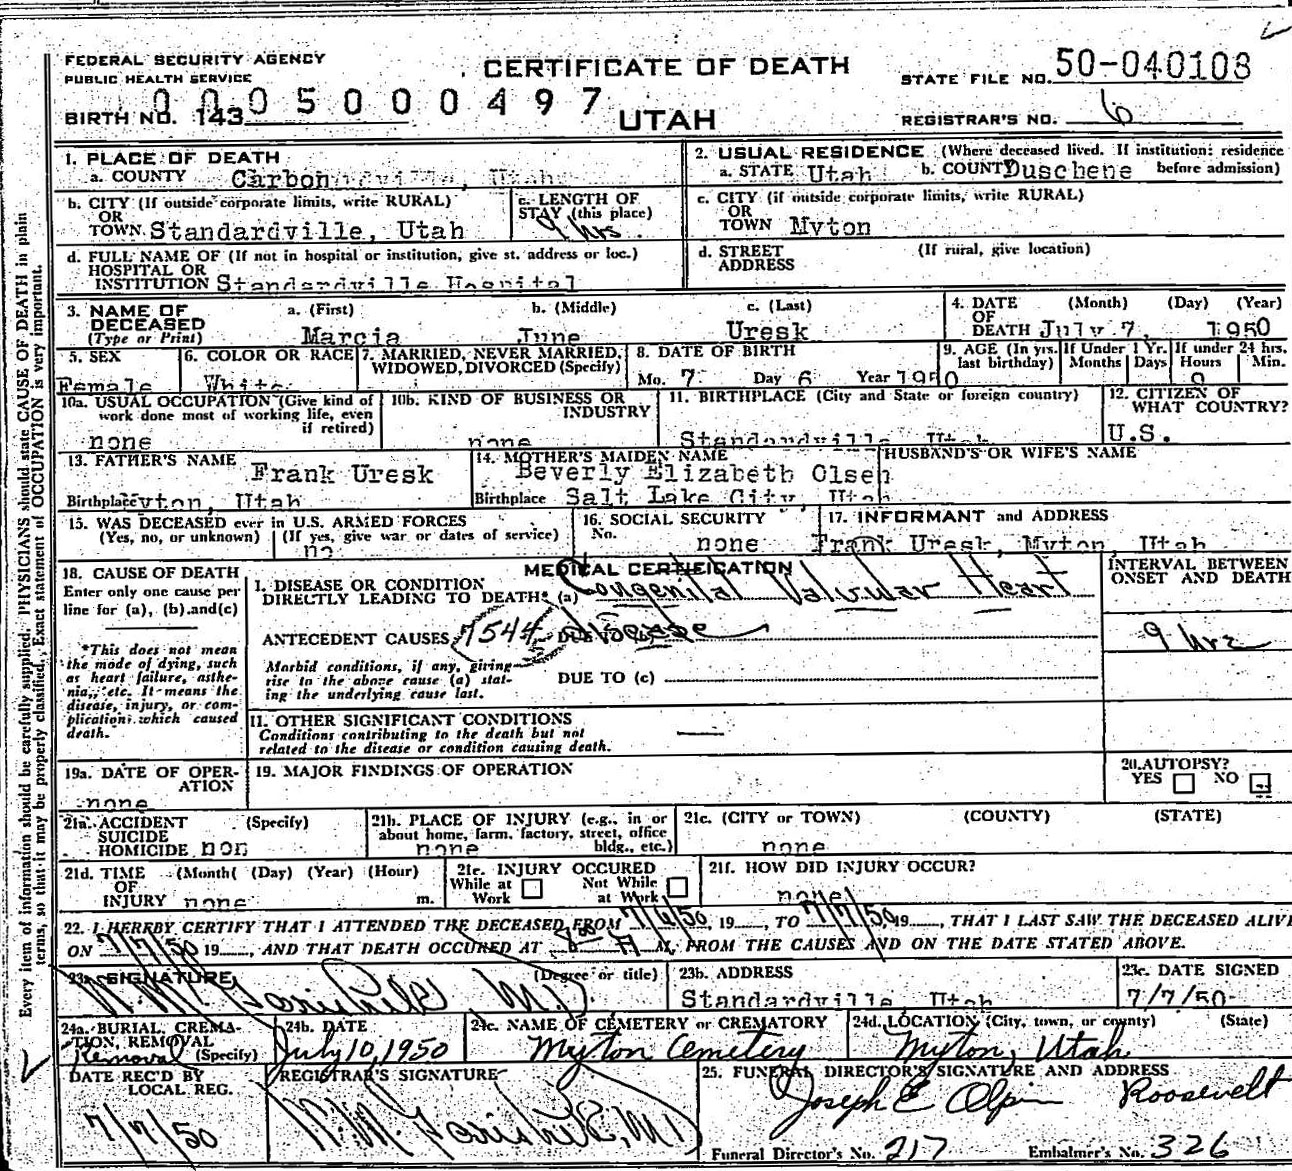 FEDERAL SECURITY AGENCY
PUBLIC HEALTH SERVICE
CERTIFICATE OF DEATH
STATE FILE NO. 50-040108
0005000497
BIRTH NO. 143
UTAH
REGISTRAR'S NO. 6
1. PLACE OF DEATH
a. COUNTY Carbon
2. USUAL RESIDENCE (Where deceased lived. If institution: residence before admission)
a. STATE Utah b. COUNTY Duschene
b. CITY (If outside corporate limits, write RURAL)
OR
TOWN Standardville, Utah
c. LENGTH OF STAY (this place)
9 hrs
c. CITY (if outside corporate limits, write RURAL)
OR
TOWN Myton
d. FULL NAME OF (If not in hospital or institution, give st. address or loc.)
HOSPITAL OR
INSTITUTION Standardville Hospital
d. STREET ADDRESS
(If rural, give location)
3. NAME OF DECEASED
(Type or Print)
a. (First) b. (Middle) c. (Last)
Marcia June Uresk
4. DATE OF DEATH (Month) (Day) (Year)
July 7, 1950
5. SEX
Female
6. COLOR OR RACE
White
7. MARRIED, NEVER MARRIED, WIDOWED, DIVORCED (Specify)
8. DATE OF BIRTH
Mo. 7 Day 6 Year 1950
9. AGE (In yrs. last birthday)
If Under 1 Yr.
Months Days
If under 24 hrs.
Hours Min.
9
10a. USUAL OCCUPATION (Give kind of work done most of working life, even if retired)
none
10b. KIND OF BUSINESS OR INDUSTRY
none
11. BIRTHPLACE (City and State or foreign country)
Standardville, Utah
12. CITIZEN OF WHAT COUNTRY?
U.S.
13. FATHER'S NAME
Frank Uresk
Birthplace Myton, Utah
14. MOTHER'S MAIDEN NAME
Beverly Elizabeth Olsen
Birthplace Salt Lake City, Utah
HUSBAND'S OR WIFE'S NAME
15. WAS DECEASED ever in U.S. ARMED FORCES
(Yes, no, or unknown) (If yes, give war or dates of service)
no
16. SOCIAL SECURITY No.
none
17. INFORMANT and ADDRESS
Frank Uresk, Myton, Utah
18. CAUSE OF DEATH
Enter only one cause per line for (a), (b) and (c)
*This does not mean the mode of dying, such as heart failure, asthenia, etc. It means the disease, injury, or complication which caused death.
MEDICAL CERTIFICATION
I. DISEASE OR CONDITION DIRECTLY LEADING TO DEATH* (a) Congenital Valvular Heart
ANTECEDENT CAUSES 7544 DUE TO (b) Disease
Morbid conditions, if any, giving rise to the above cause (a) stating the underlying cause last.
DUE TO (c)
INTERVAL BETWEEN ONSET AND DEATH
9 hrs
11. OTHER SIGNIFICANT CONDITIONS
Conditions contributing to the death but not related to the disease or condition causing death.
—
19a. DATE OF OPERATION
none
19. MAJOR FINDINGS OF OPERATION
20. AUTOPSY?
YES NO
21a. ACCIDENT SUICIDE HOMICIDE (Specify)
non
21b. PLACE OF INJURY (e.g., in or about home, farm, factory, street, office bldg., etc.)
none
21c. (CITY or TOWN) (COUNTY) (STATE)
none
21d. TIME OF INJURY (Month( (Day) (Year) (Hour)
none m.
21e. INJURY OCCURED
While at Work Not While at Work
21f. HOW DID INJURY OCCUR?
none
22. I HEREBY CERTIFY THAT I ATTENDED THE DECEASED FROM 7/6/50, 19____, TO 7/7/50 19____, THAT I LAST SAW THE DECEASED ALIVE
ON 7/7/50 19____, AND THAT DEATH OCCURED AT A M, FROM THE CAUSES AND ON THE DATE STATED ABOVE.
23a. SIGNATURE (Degree or title)
M.D.
23b. ADDRESS
Standardville, Utah
23c. DATE SIGNED
7/7/50
24a. BURIAL, CREMATION, REMOVAL (Specify)
Removal
24b. DATE
July 10, 1950
24c. NAME OF CEMETERY or CREMATORY
Myton Cemetery
24d. LOCATION (City, town, or county) (State)
Myton, Utah
DATE REC'D BY LOCAL REG.
7/7/50
REGISTRAR'S SIGNATURE
25. FUNERAL DIRECTOR'S SIGNATURE AND ADDRESS
Joseph E Olpin Roosevelt
Funeral Director's No. 217 Embalmer's No. 326
Every item of information should be carefully supplied. PHYSICIANS should state CAUSE OF DEATH in plain
terms, so that it may be properly classified. Exact statement of OCCUPATION is very important.